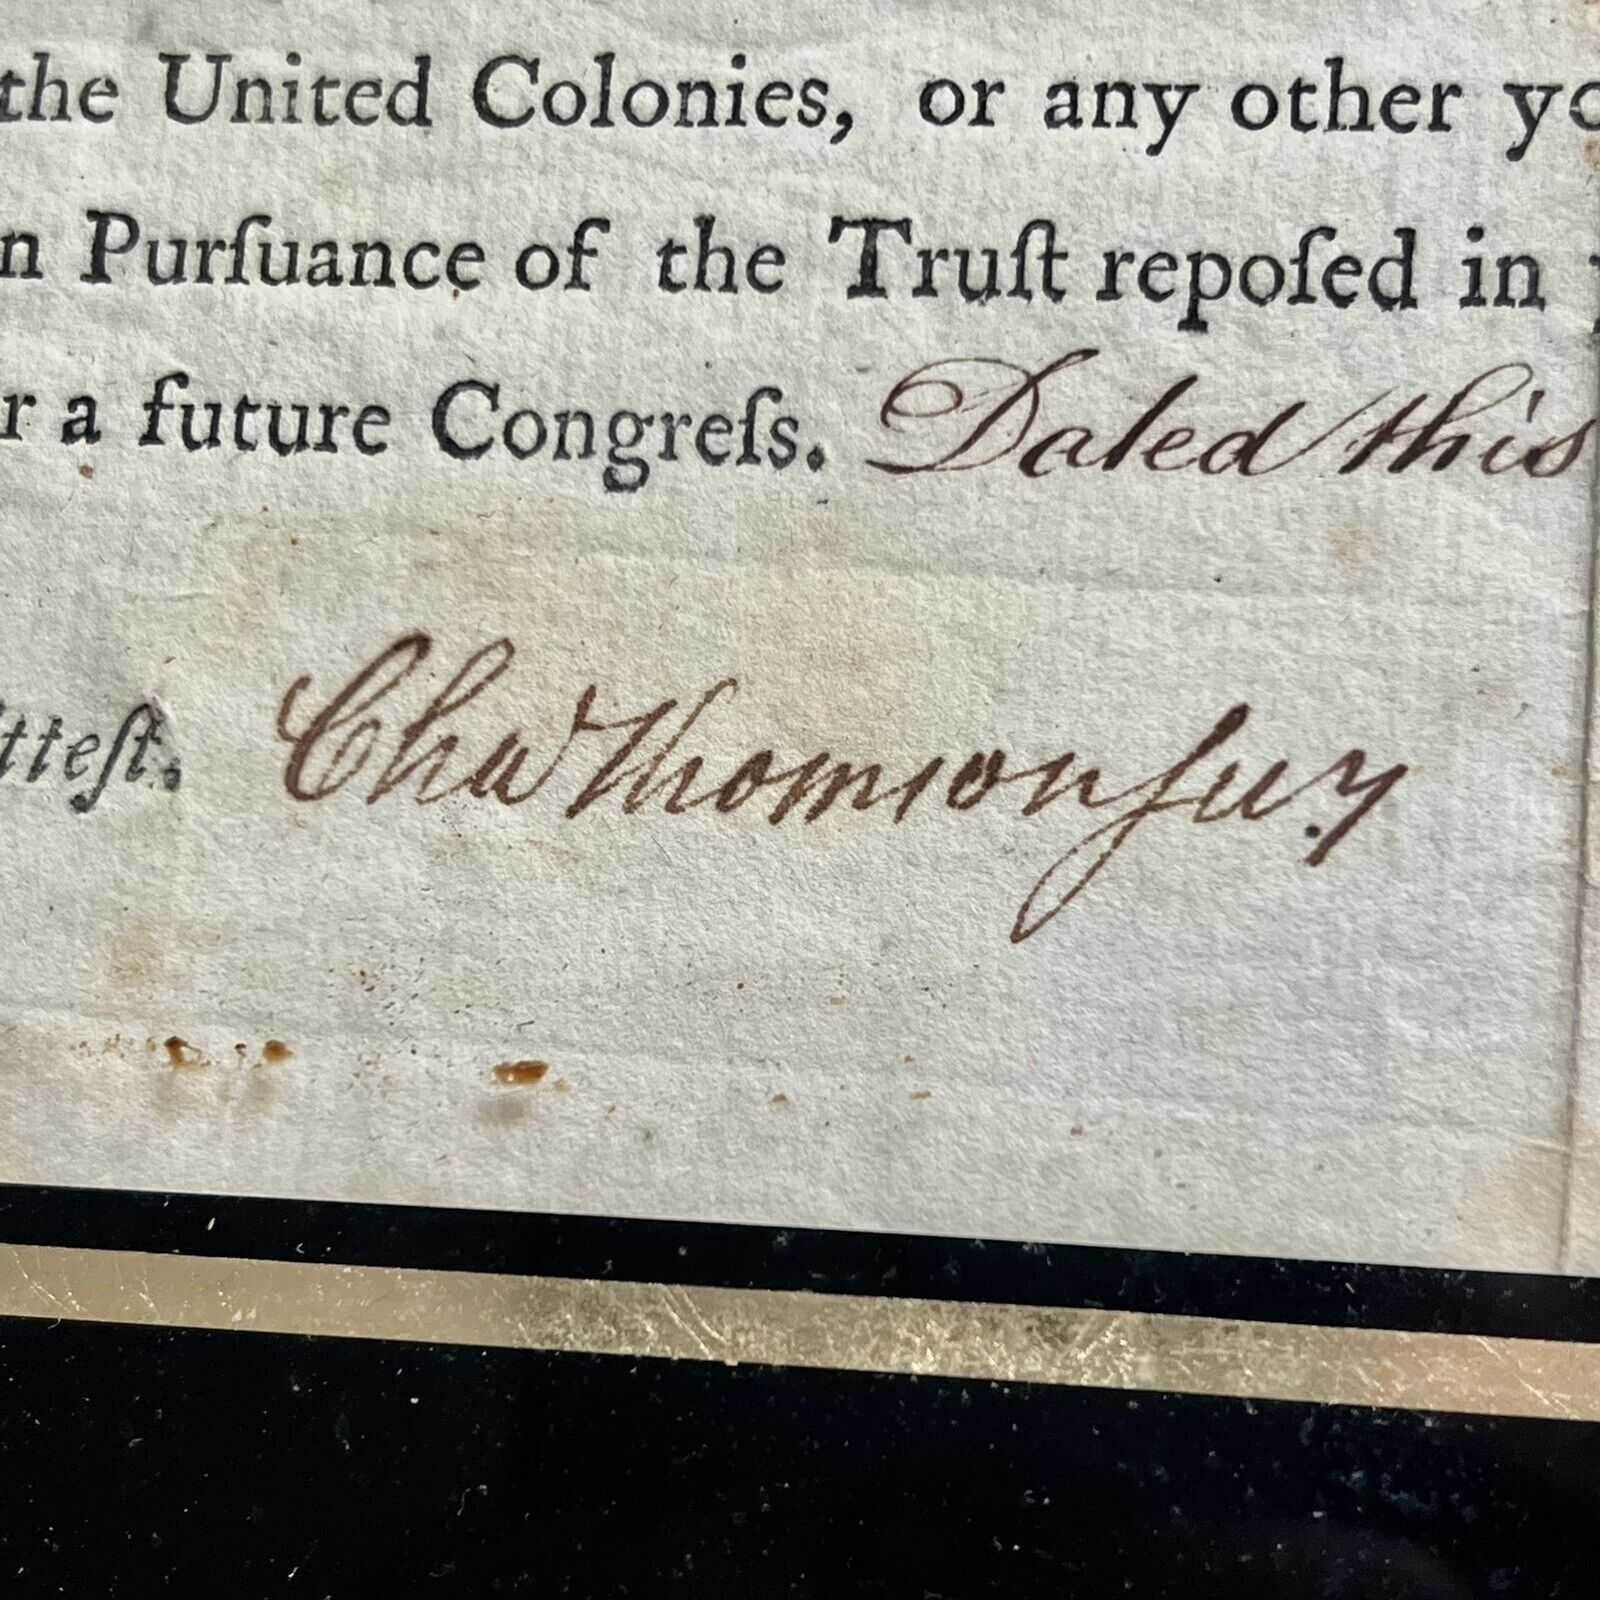 the United Colonies, or any other yo
n Purſuance of the Truſt repoſed in
r a future Congreſs. Dated this
tteſt. Cha Thomson ſecy